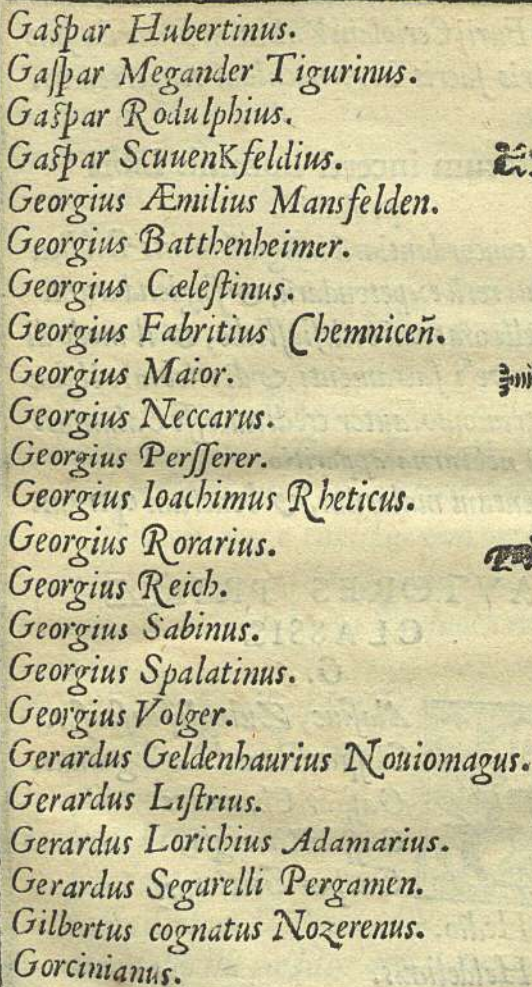 Gaſpar Hubertinus.
Gaſpar Megander Tigurinus.
Gaſpar Rodulphius.
Gaſpar ScuuenKfeldius.
Georgius Æmilius Mansfelden.
Georgius Batthenheimer.
Georgius Cæleſtinus.
Georgius Fabritius Chemniceñ.
Georgius Maior.
Georgius Neccarus.
Georgius Perſſerer.
Georgius Ioachimus Rheticus.
Georgius Rorarius.
Georgius Reich.
Georgius Sabinus.
Georgius Spalatinus.
Georgius Volger.
Gerardus Geldenhaurius Nouiomagus.
Gerardus Liſtrius.
Gerardus Lorichius Adamarius.
Gerardus Segarelli Pergamen.
Gilbertus cognatus Nozerenus.
Gorcinianus.